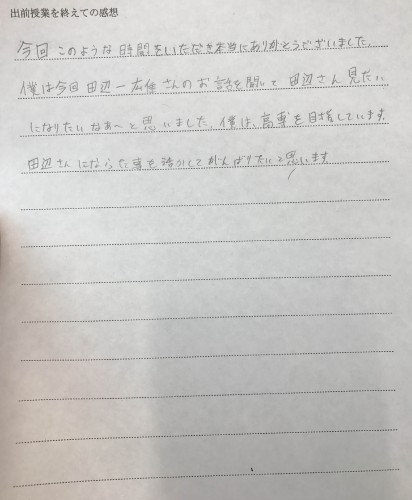 出前授業を終えての感想
今回このような時間をいただき本当にありがとうございました。
僕は今回田辺一広さんのお話を聞いて田辺さん見たい
になりたいなぁ〜と思いました。僕は、高専を目指しています。
田辺さんにならった事を活かしてがんばりたいと思います